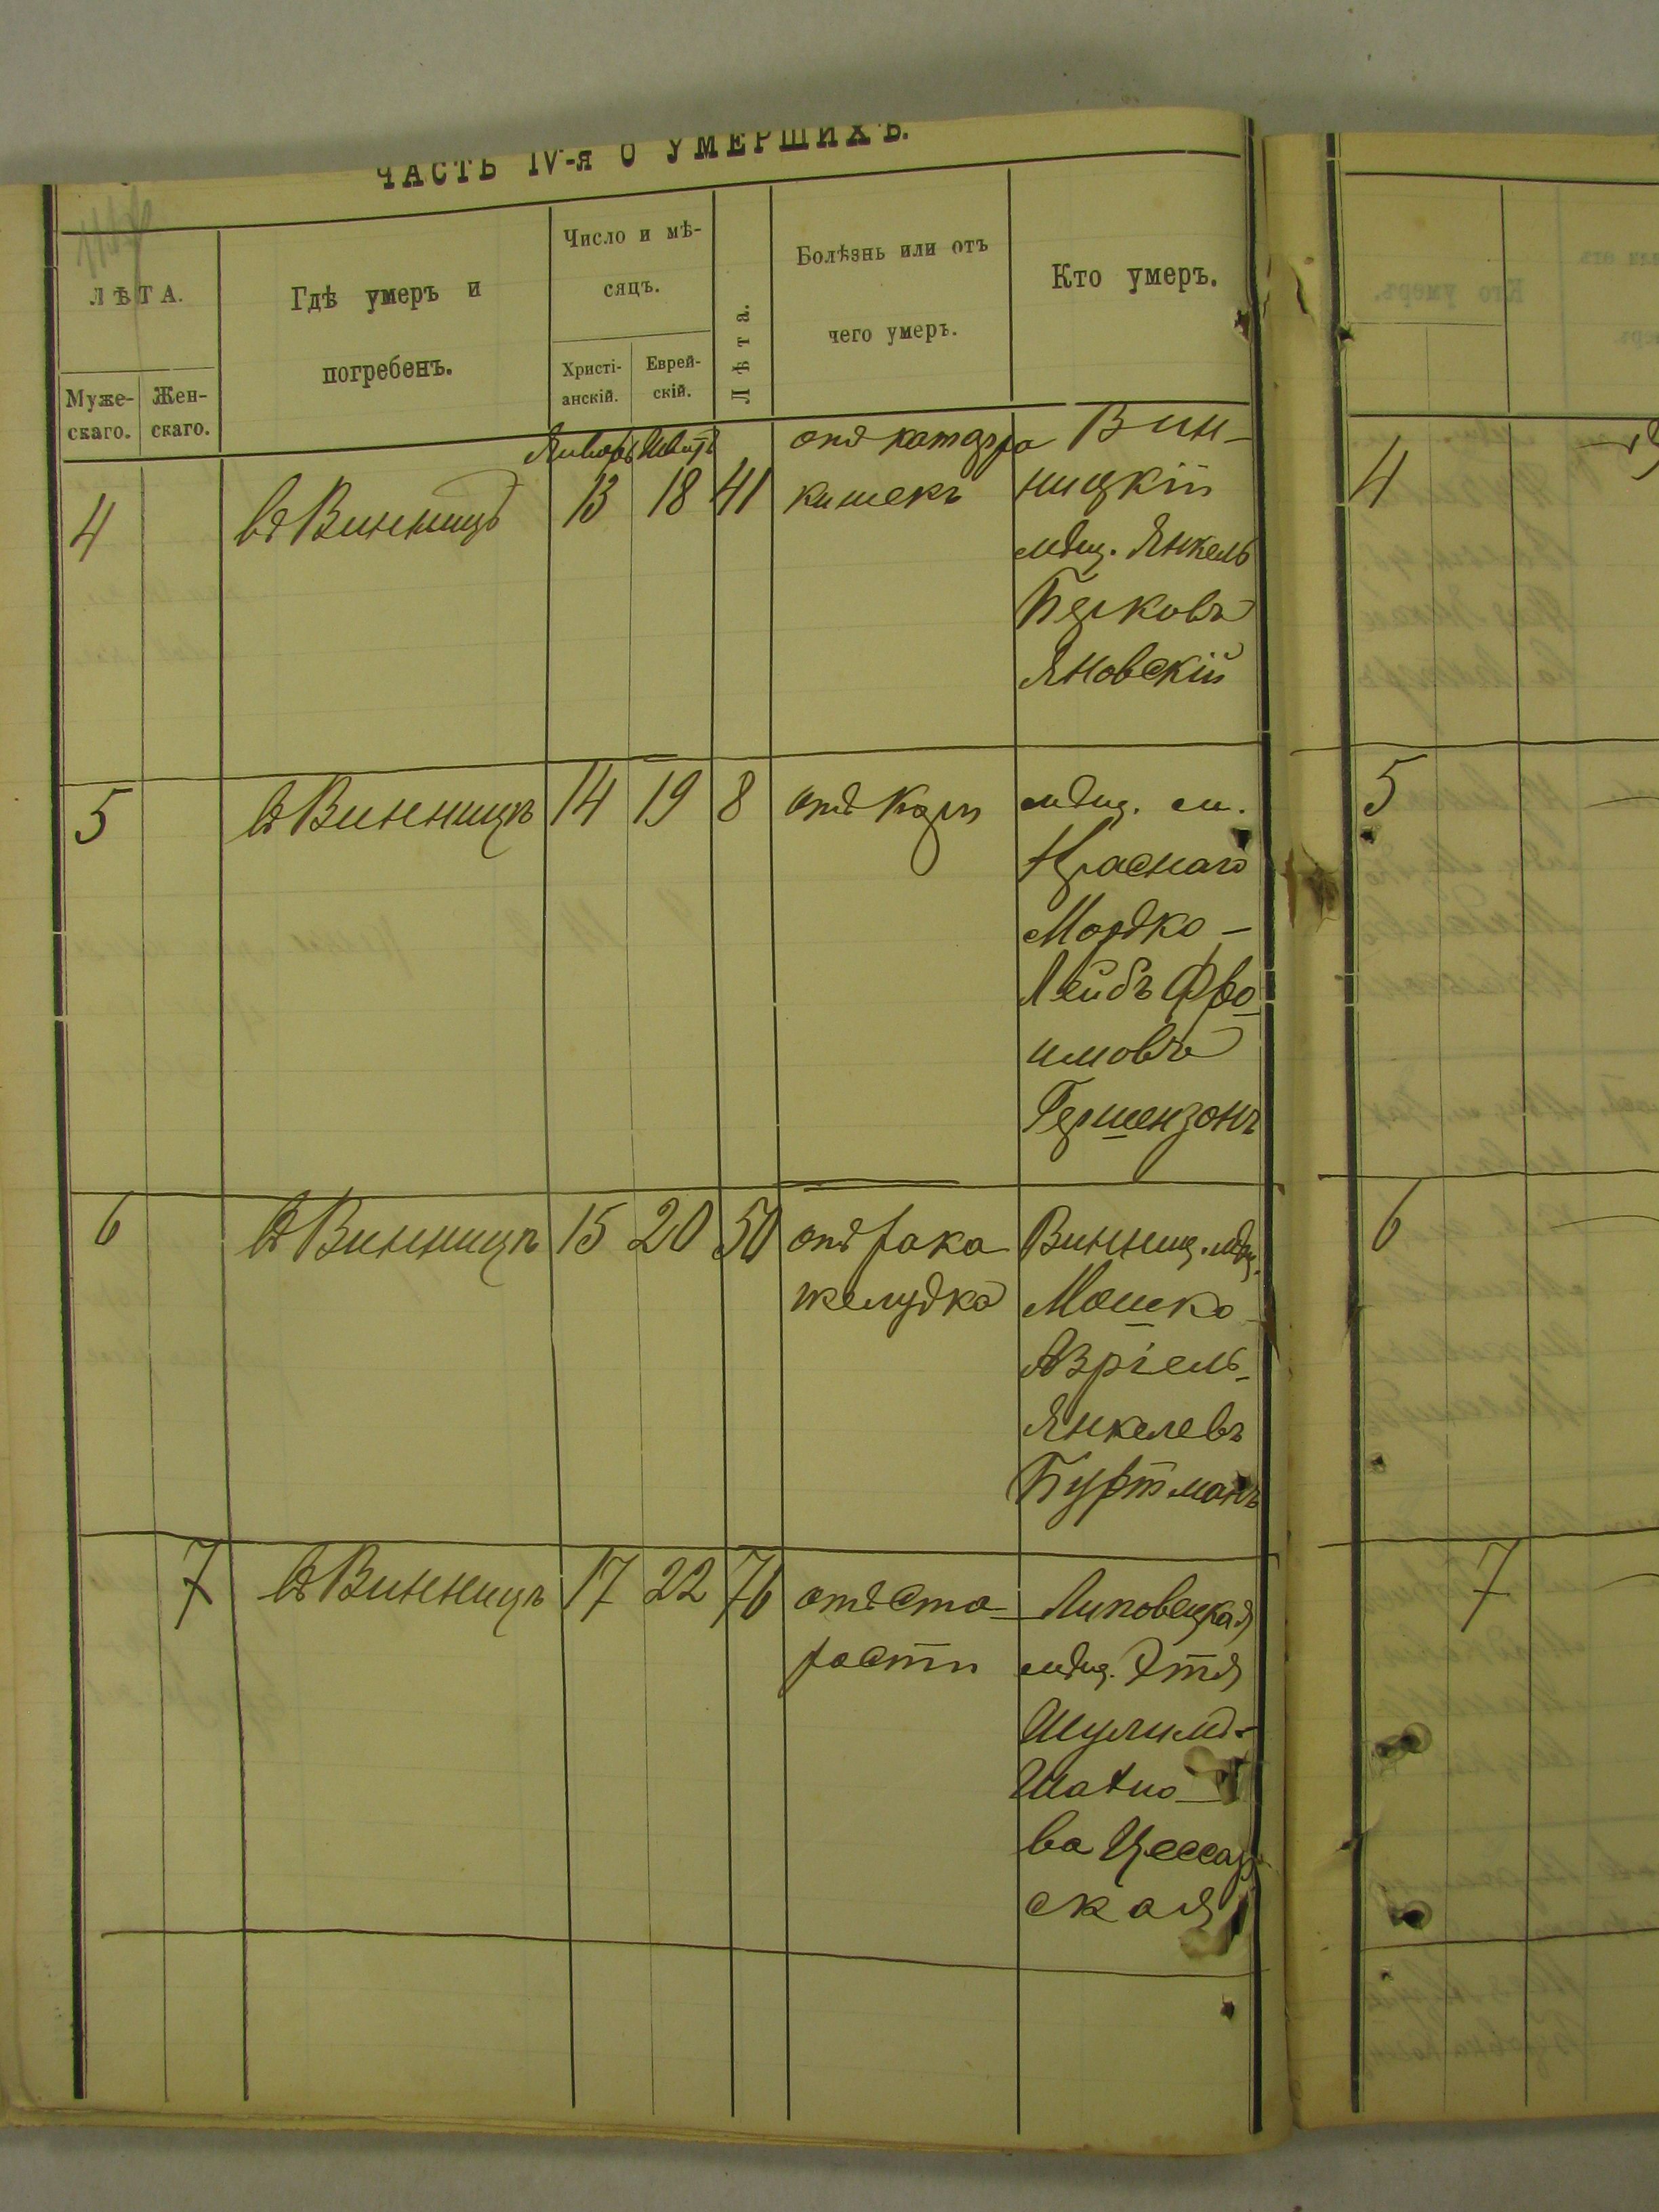 ЧАСТЬ IV-я О УМЕРШИХЪ.
ЛѢТА.
Муже-
скаго.
Жен-
скаго.
Гдѣ умеръ и
погребенъ.
Число и мѣ-
сяцъ.
Христі-
анскій.
Еврей-
скій.
Лѣта.
Болѣзнь или отъ
чего умеръ.
Кто умеръ.
Январь Шватъ
4
въ Винницѣ
13
18
41
отъ катарра
кишекъ
Вин-
ницкій
мѣщ. Янкель
Берковъ
Яновскій
5
въ Винницѣ
14
19
8
отъ Кори
мѣщ. м.
Краснаго
Мордко-
Лейбъ Фро
имовъ
Гершензонъ
6
въ Винницѣ
15
20
50
отъ рака
желудка
Винниц. мѣщ.
Мошко
Азріель-
Янкелевъ
Буртманъ
7
въ Винницѣ
17
22
76
отъ ста-
рости
Липовецкая
мѣщ. Этя
Шулимъ-
ва Цессар
ская
4
5
6
7